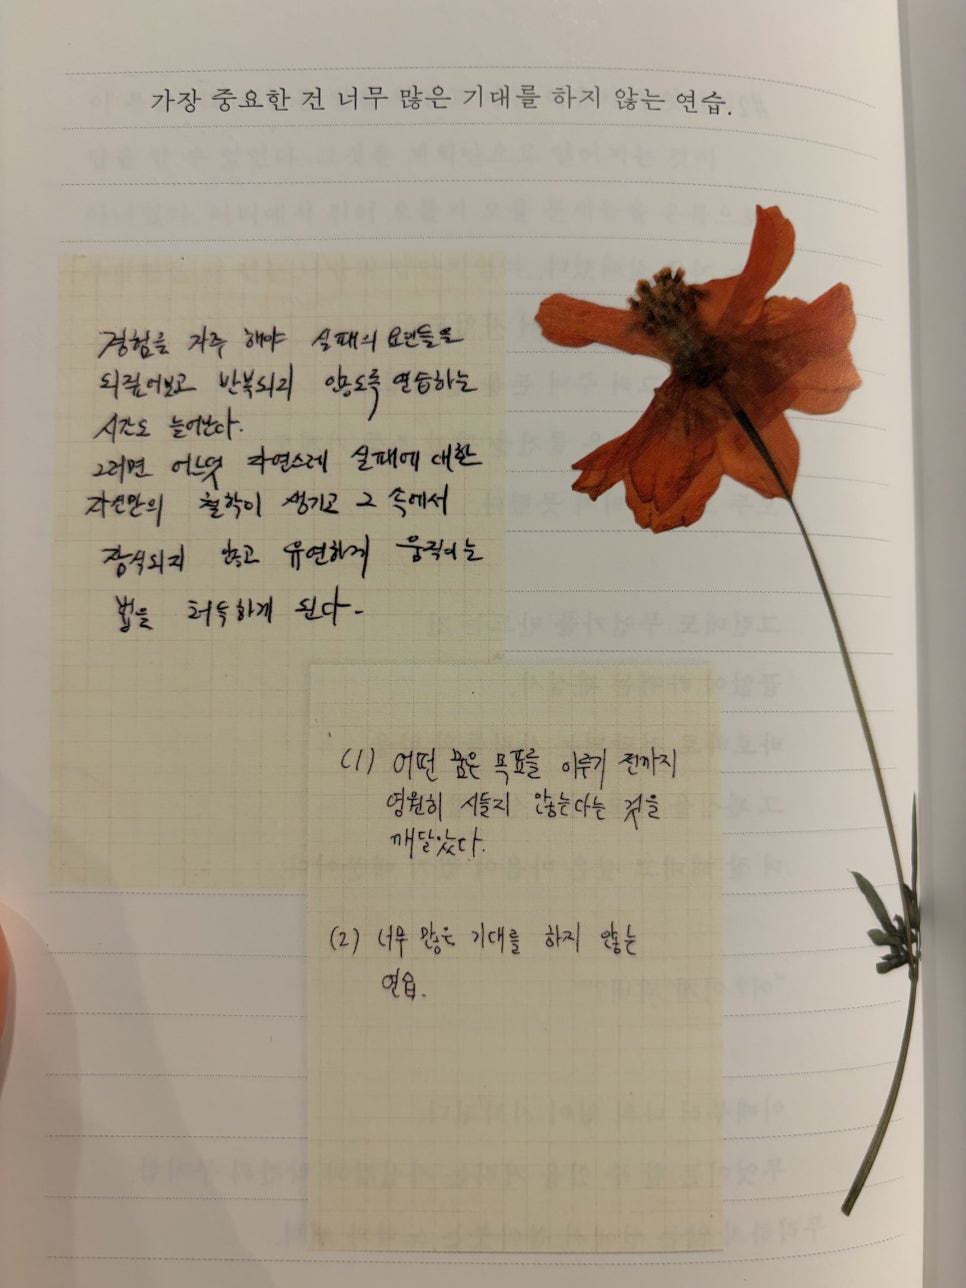 가장 중요한 건 너무 많은 기대를 하지 않는 연습.
경험을 자주 해야 실패의 요인들을
되짚어보고 반복되지 않도록 연습하는
시간도 늘어난다.
그러면 어느덧 자연스레 실패에 대한
자신만의 철학이 생기고 그 속에서
잠식되지 않고 유연하게 움직이는
법을 터득하게 된다.
(1) 어떤 꿈은 목표를 이루기 전까지
영원히 시들지 않는다는 것을
깨달았다.
(2) 너무 많은 기대를 하지 않는
연습.